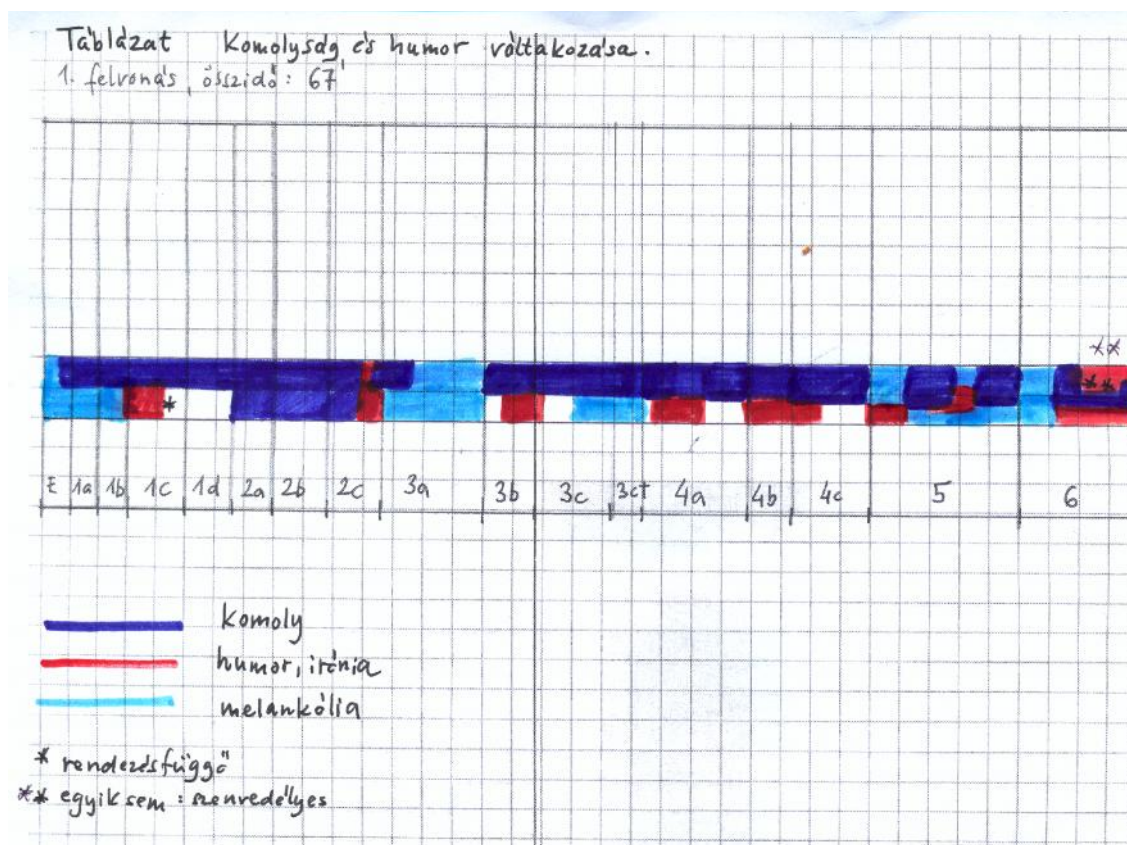 Táblázat Komolyság és humor váltakozása.
1. felvonás, összidő: 67'
**
* **
E 1a 1b 1c 1d 2a 2b 2c 3a 3b 3c 3c† 4a 4b 4c 5 6
komoly
humor, irónia
melankólia
* rendezésfüggő
** egyik sem: szenvedélyes